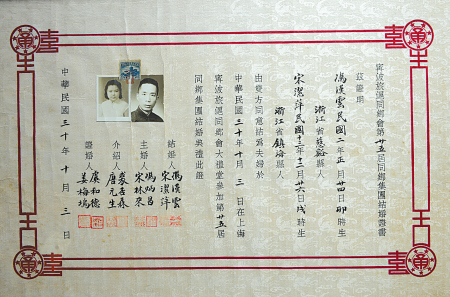 寧波旅滬同鄉會第廿五屆同鄉集團結婚證書
茲證明
馮漢雲民國二年正月廿四日卯時生
浙江省慈谿縣人
宋潔萍民國十三年十二月廿六日戌時生
浙江省鎮海縣人
由雙方同意結為夫婦於
中華民國三十年十月三日在上海
寧波旅滬同鄉會大禮堂參加第廿五屆
同鄉集團結婚典禮此證
結婚人 馮漢雲
宋潔萍
主婚人 馮炳昌
宋林來
介紹人
唐元生
證婚人 虞和德
姜梅塢
中華民國三十年十月三日